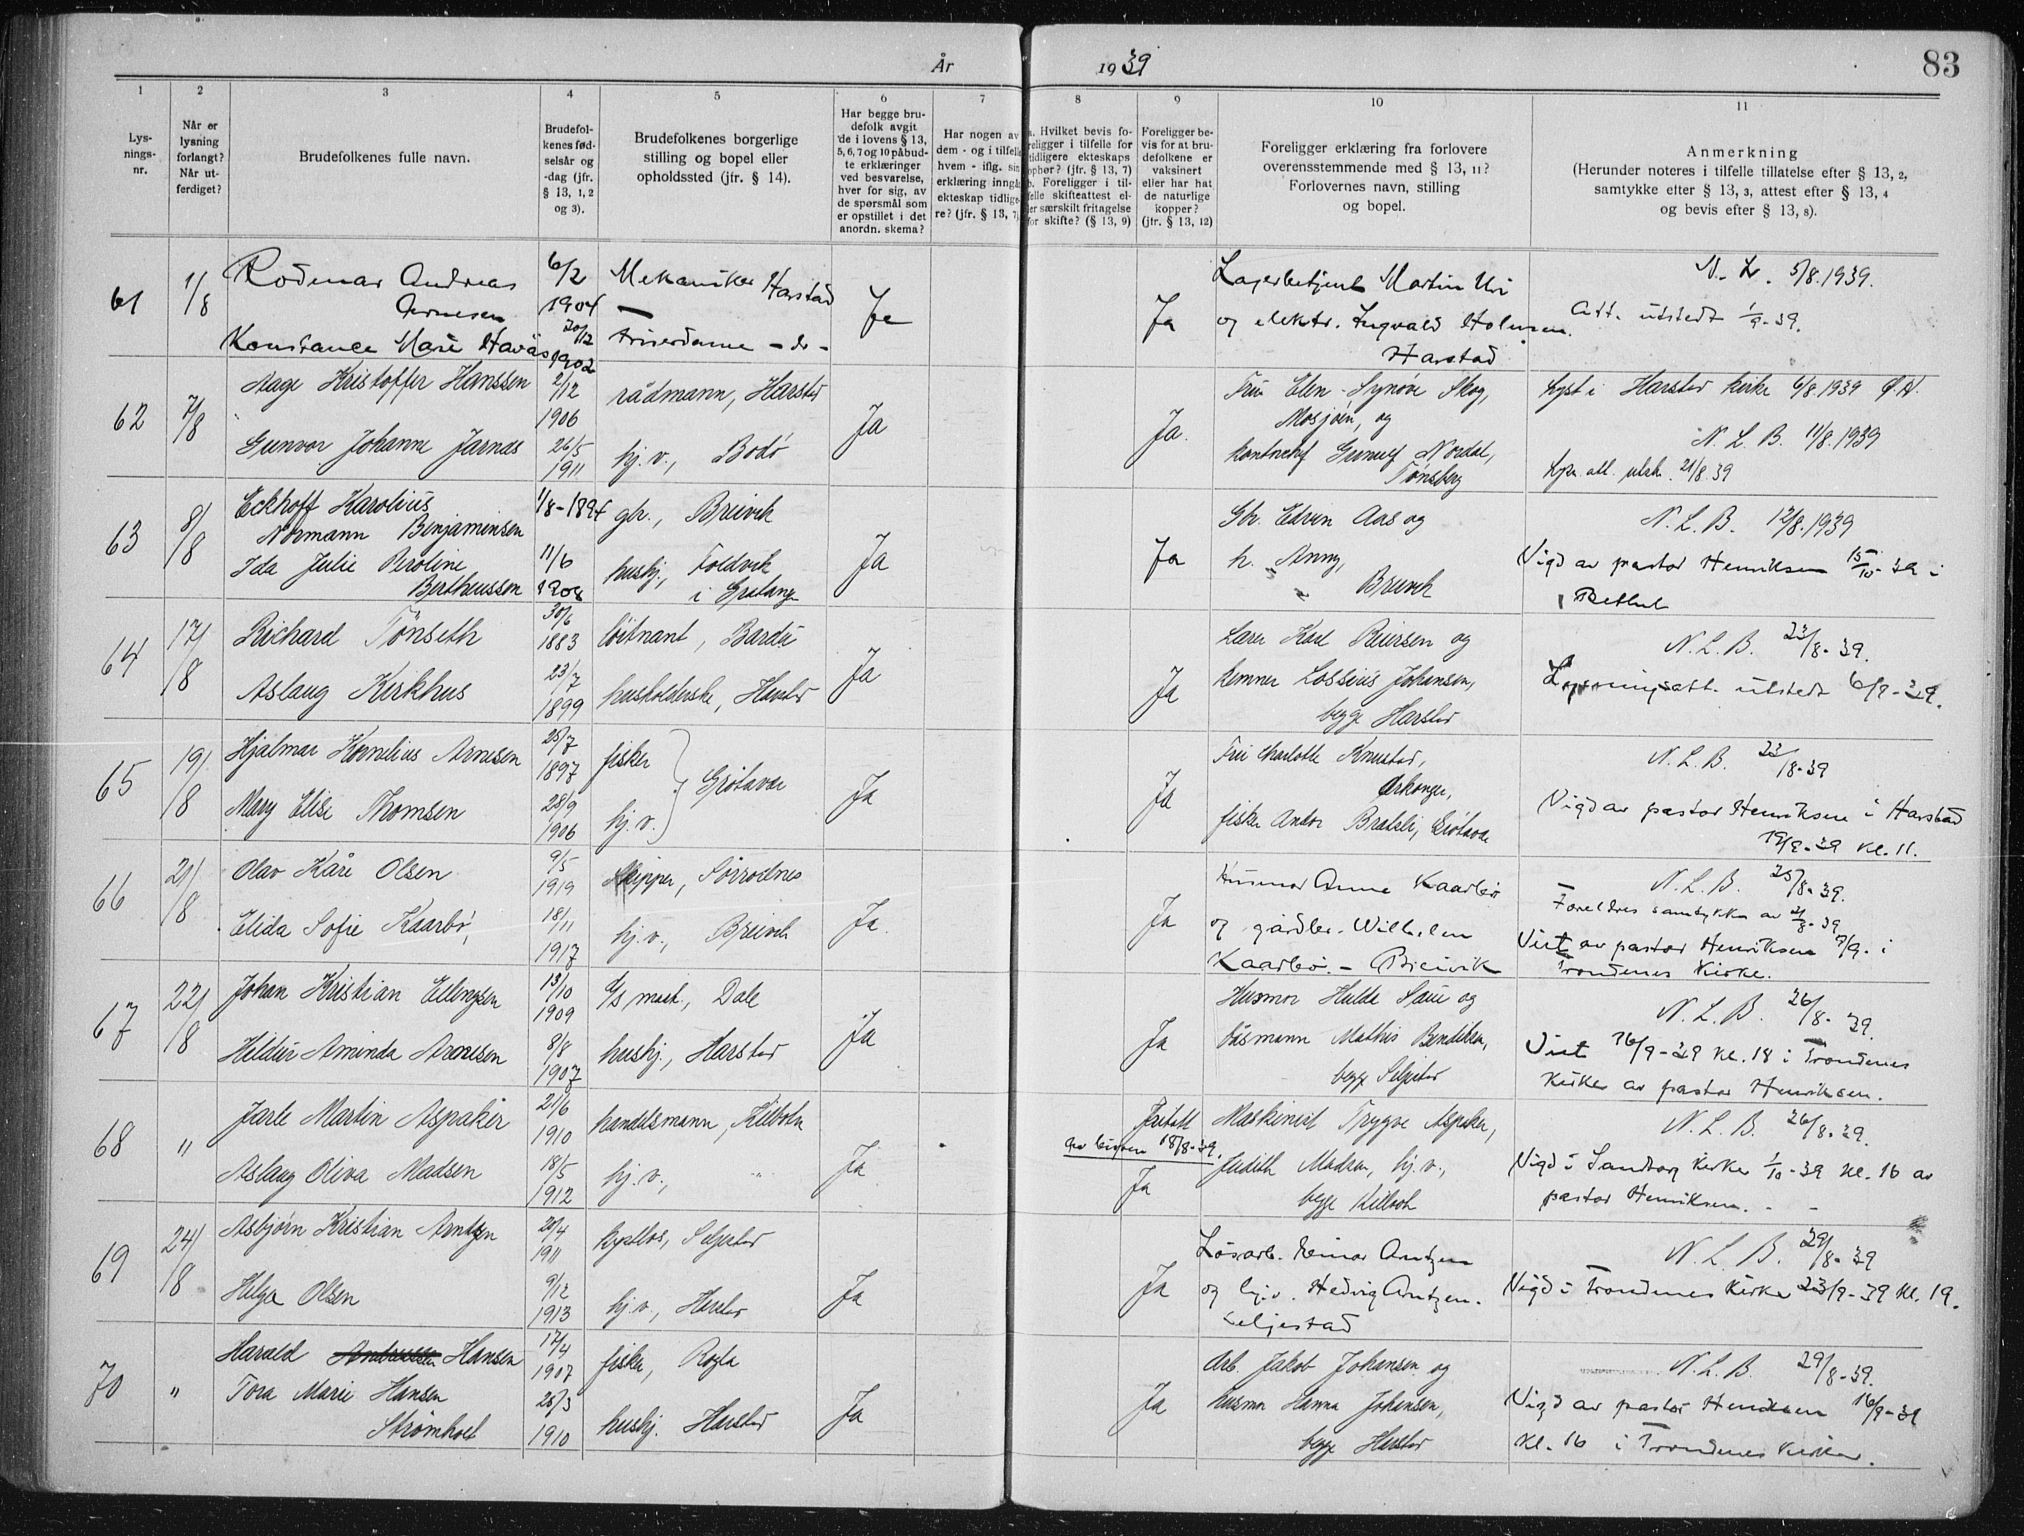 83
År 1939
1 2 3 4 5 6 7 8 9 10 11
Lys-
nings-
nr.
Når er
lysning
forlangt?
Når ut-
ferdiget?
Brudefolkenes fulle navn.
Brudefol-
kenes fød-
selsår og
-dag (jfr.
§ 13, 1, 2
og 3).
Brudefolkenes borgerlige
stilling og bopel eller
opholdssted (jfr. § 14).
Har begge bru-
defolk avgit
de i lovens § 13,
5, 6, 7 og 10 påbud-
te erklæringer
ved besvarelse,
hver for sig, av
de spørsmål som
er opstillet i det
anordn. skema?
Har nogen av
dem - og i tilfelle
hvem - iflg. sin
erklæring inngåt
ekteskap tidlige-
re? (jfr. § 13, 7)
a. Hvilket bevis fo-
religger i tilfelle for
tidligere ekteskaps
ophør? (jfr. § 13, 7)
b. Foreligger i til-
felle skifteattest el-
ler særskilt fritagelse
for skifte? (§ 13, 9)
Foreligger be-
vis for at bru-
defolkene er
vaksinert
eller har hat
de naturlige
kopper?
(jfr. § 13, 12)
Foreligger erklæring fra forlovere
overensstemmende med § 13, 11?
Forlovernes navn, stilling
og bopel.
Anmerkning
(Herunder noteres i tilfelle tillatelse efter § 13, 2,
samtykke efter § 13, 3, attest efter § 13, 4
og bevis efter § 13, 8).
61 1/8 Rodmar Andreas 6/2 Mekaniker Harstad Ja Ja Lagerbetjent Martin Uri N. L. 5/8.1939.
Arnesen 1904 og elektr. Ingvald Holmsen Att. utstedt 1/9-39.
Konstance Marie Havås 20/12 1902 Friserdame - do - Harstad
62 7/8 Aage Kristoffer Hanssen 2/12 1906 rådmann, Harstad Ja Ja. Fru Elen Synøve Skog, Lyst i Harstad kirke 6/8.1939
Mosjøen, og N. L. B. 11/8.1939
Gunvor Johanne Jarnæs 26/5 1911 hj. v., Bodø kontorchef Nordal, 21/8.39
Tønsberg
63 8/8 Eckhoff Karolius 1/8-1894 gbr., Breivik Ja Ja Gbr. Edvin Aas og N. L. B. 12/8.1939
Normann Benjaminsen h. Anny, Vigd av pastor Henriksen 15/10-39 i
Ida Julie Peroline 11/6 hushj., Foldvik Breivik Bethel
Bertheussen 1908 i Gratangen
64 17/8 Richard Tønseth 30/6 1883 løitnant, Bardu Ja Ja Lærer Karl Reiersen og N. L. B. 23/8-39.
Aslaug Kirkhus 23/7 1899 husholderske, Harstad kemner Lossius Johansen, Lysningsatt. utstedt 6/9-39.
begge Harstad
65 19/8 Hjalmar Kornelius Arnesen 25/7 1897 fisker Grøtavær Ja Ja Fru Charlotte Knutsd, N. L. B. 23/8-39
Mary Elise Thomsen 28/9 1906 hj. v. Vigd av pastor Henriksen i Harstad
fisker Andor Grøtavær 19/9-39 kl. 11.
66 21/8 Olav Kåre Olsen 9/5 1919 skipper, Sørrollnes Ja. Ja Husmor Anna Kaarbø N. L. B. 25/8-39.
Foreldres samtykke av 21/8-39
Elida Sofie Kaarbø, 18/11 1917 hj. v., Breivik og gårdbr. Wilhelm Viet av pastor Henriksen 9/9- i
Kaarbø. - Breivik Trondenes Kirke.
67 22/8 Johan Kristian Ellingsen 13/10 1909 Dale Ja Ja Husmor Hulda og N. L. B. 26/8-39.
Hildur Aminda Arnesen 8/8 1907 hushj., Harstad båsmann Mathis Bendiksen, Viet 16/9-39 kl. 18 i Trondenes
begge Seljestad Kirke av pastor Henriksen.
68 " Jarle Martin Aspaker 21/6 1910 handelsmann, Kilbotn Ja Fritatt Maskinist Trygve Aspaker, N. L. B. 26/8-39.
av bispen 18/8-39.
Aslaug Oliva Madsen 18/5 1912 hj. v., " Ja Judith Madsen, hj. v., Vigd i Sandtorg Kirke 1/10-39 kl. 16 av
begge Kilbotn pastor Henriksen. - -
69 24/8 Asbjørn Kristian Arntzen 20/4 1911 kystlos, Seljestad Ja Ja Løsarb. Einar Arntzen N. L. B. 29/8-39
Helga Olsen 9/12 1913 hj. v., Harstad og hj.v. Hedvig Arntzen. Vigd i Trondenes Kirke 23/9-39 kl. 19.
Seljestad
70 " Harald Andreassen Hansen 17/4 1907 fisker, Rogla Ja Ja Arb. Jakob Johansen og N. L. B. 29/8-39.
Tora Marie Hansen 25/3 1910 hushj. Harstad husmor Hanna Johansen, Vigd av pastor Henriksen 16/9-39
Strømholt begge Harstad kl. 16 i Trondenes Kirke.